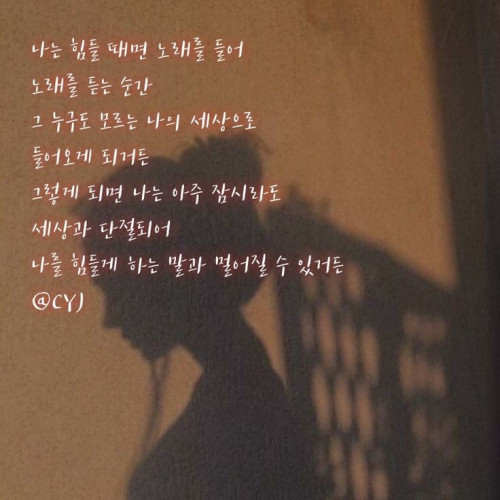 나는 힘들 때면 노래를 들어
노래를 듣는 순간
그 누구도 모르는 나의 세상으로
들어오게 되거든
그렇게 되면 나는 아주 잠시라도
세상과 단절되어
나를 힘들게 하는 말과 멀어질 수 있거든
@CYJ